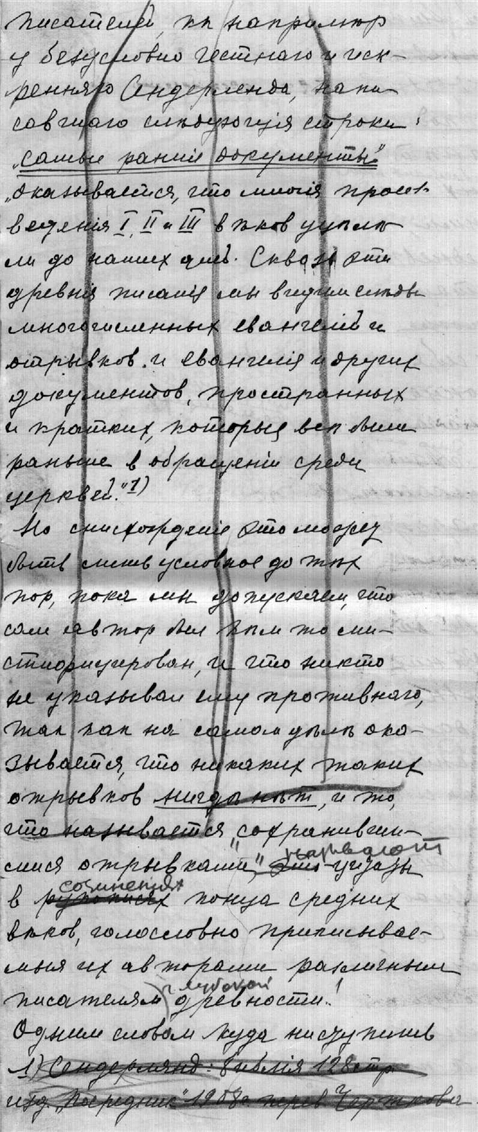 писателей, кк например
у безусловно честнаго и иск-
ренняго Сендерленда, напи
савшаго слѣдующія строки:
„самые ранніе документы"
„оказывается, что многія произ-
веденія I, II и III вѣков уцѣлѣ
ли до наших дней. Сквозь эти
древнія писанія мы видим слѣды
многочисленных евангелій и
отрывков и евангелія и других
документов, пространных
и кратких, которые всѣ были
раньше в обращеніи среди
церквей."1)
Но снисхожденіе это может
быть лишь условное до тѣх
пор, пока мы допускаем, что
сам автор был кѣм то ми-
стифицирован, и что никто
не указывал ему противнаго,
так как на самом дѣлѣ ока-
зывается, что никаких таких
отрывков нигдѣ нѣт, и то,
что называется „сохранивши-
мися отрывками", это цитаты
в рукописях сочинениях конца средних
вѣков, голословно приписывае-
мыя их авторами различным
писателям глубокой древности!
Одним словом куда ни ступишь
1) Сендерлянд: Библія 128 стр
изд. „Посредник" 1908 г. перев. Черткова